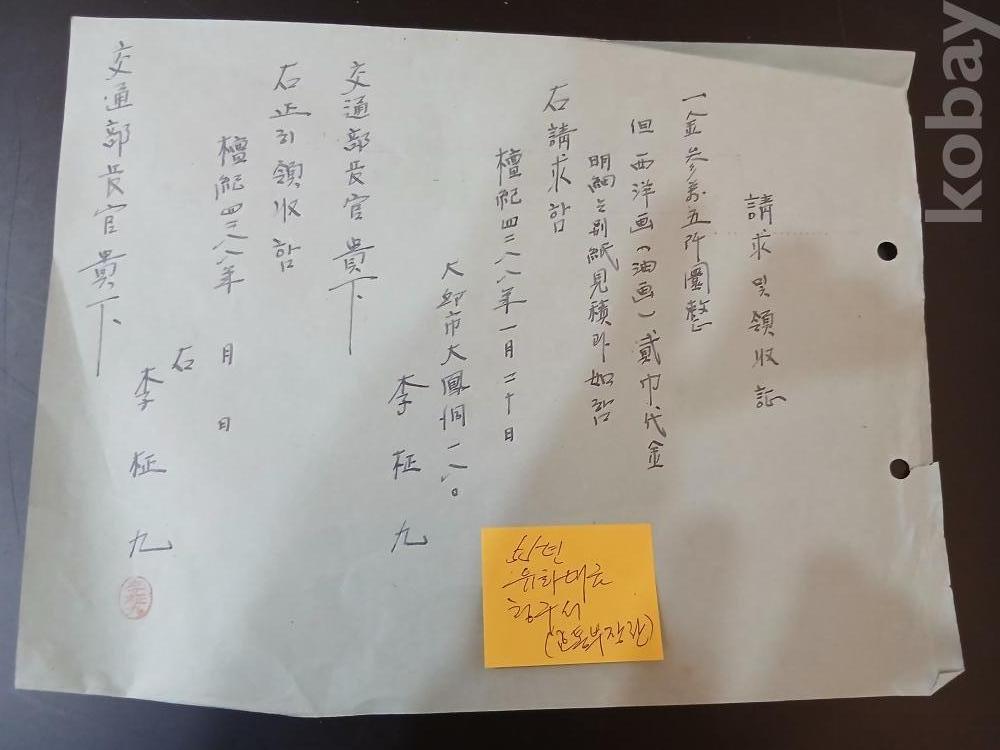 請求 및 領收証
一金 參萬五阡圜整
但 西洋画(油画) 貳巾代金
明細는 別紙見積과 如함
右 請求함
檀紀四二八八年 一月二十日
大邱市大鳳洞一八〇
李柾九
交通部長官 貴下
右正히 領收함
檀紀四二八八年 月 日
右 李柾九
交通部長官 貴下
55년
유화대금
청구서
(교통부장관)
kobay